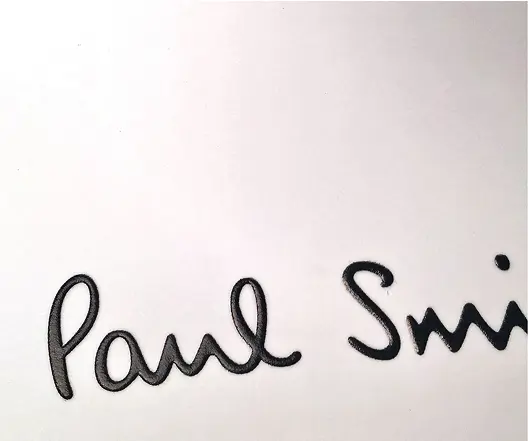 Paul Smi